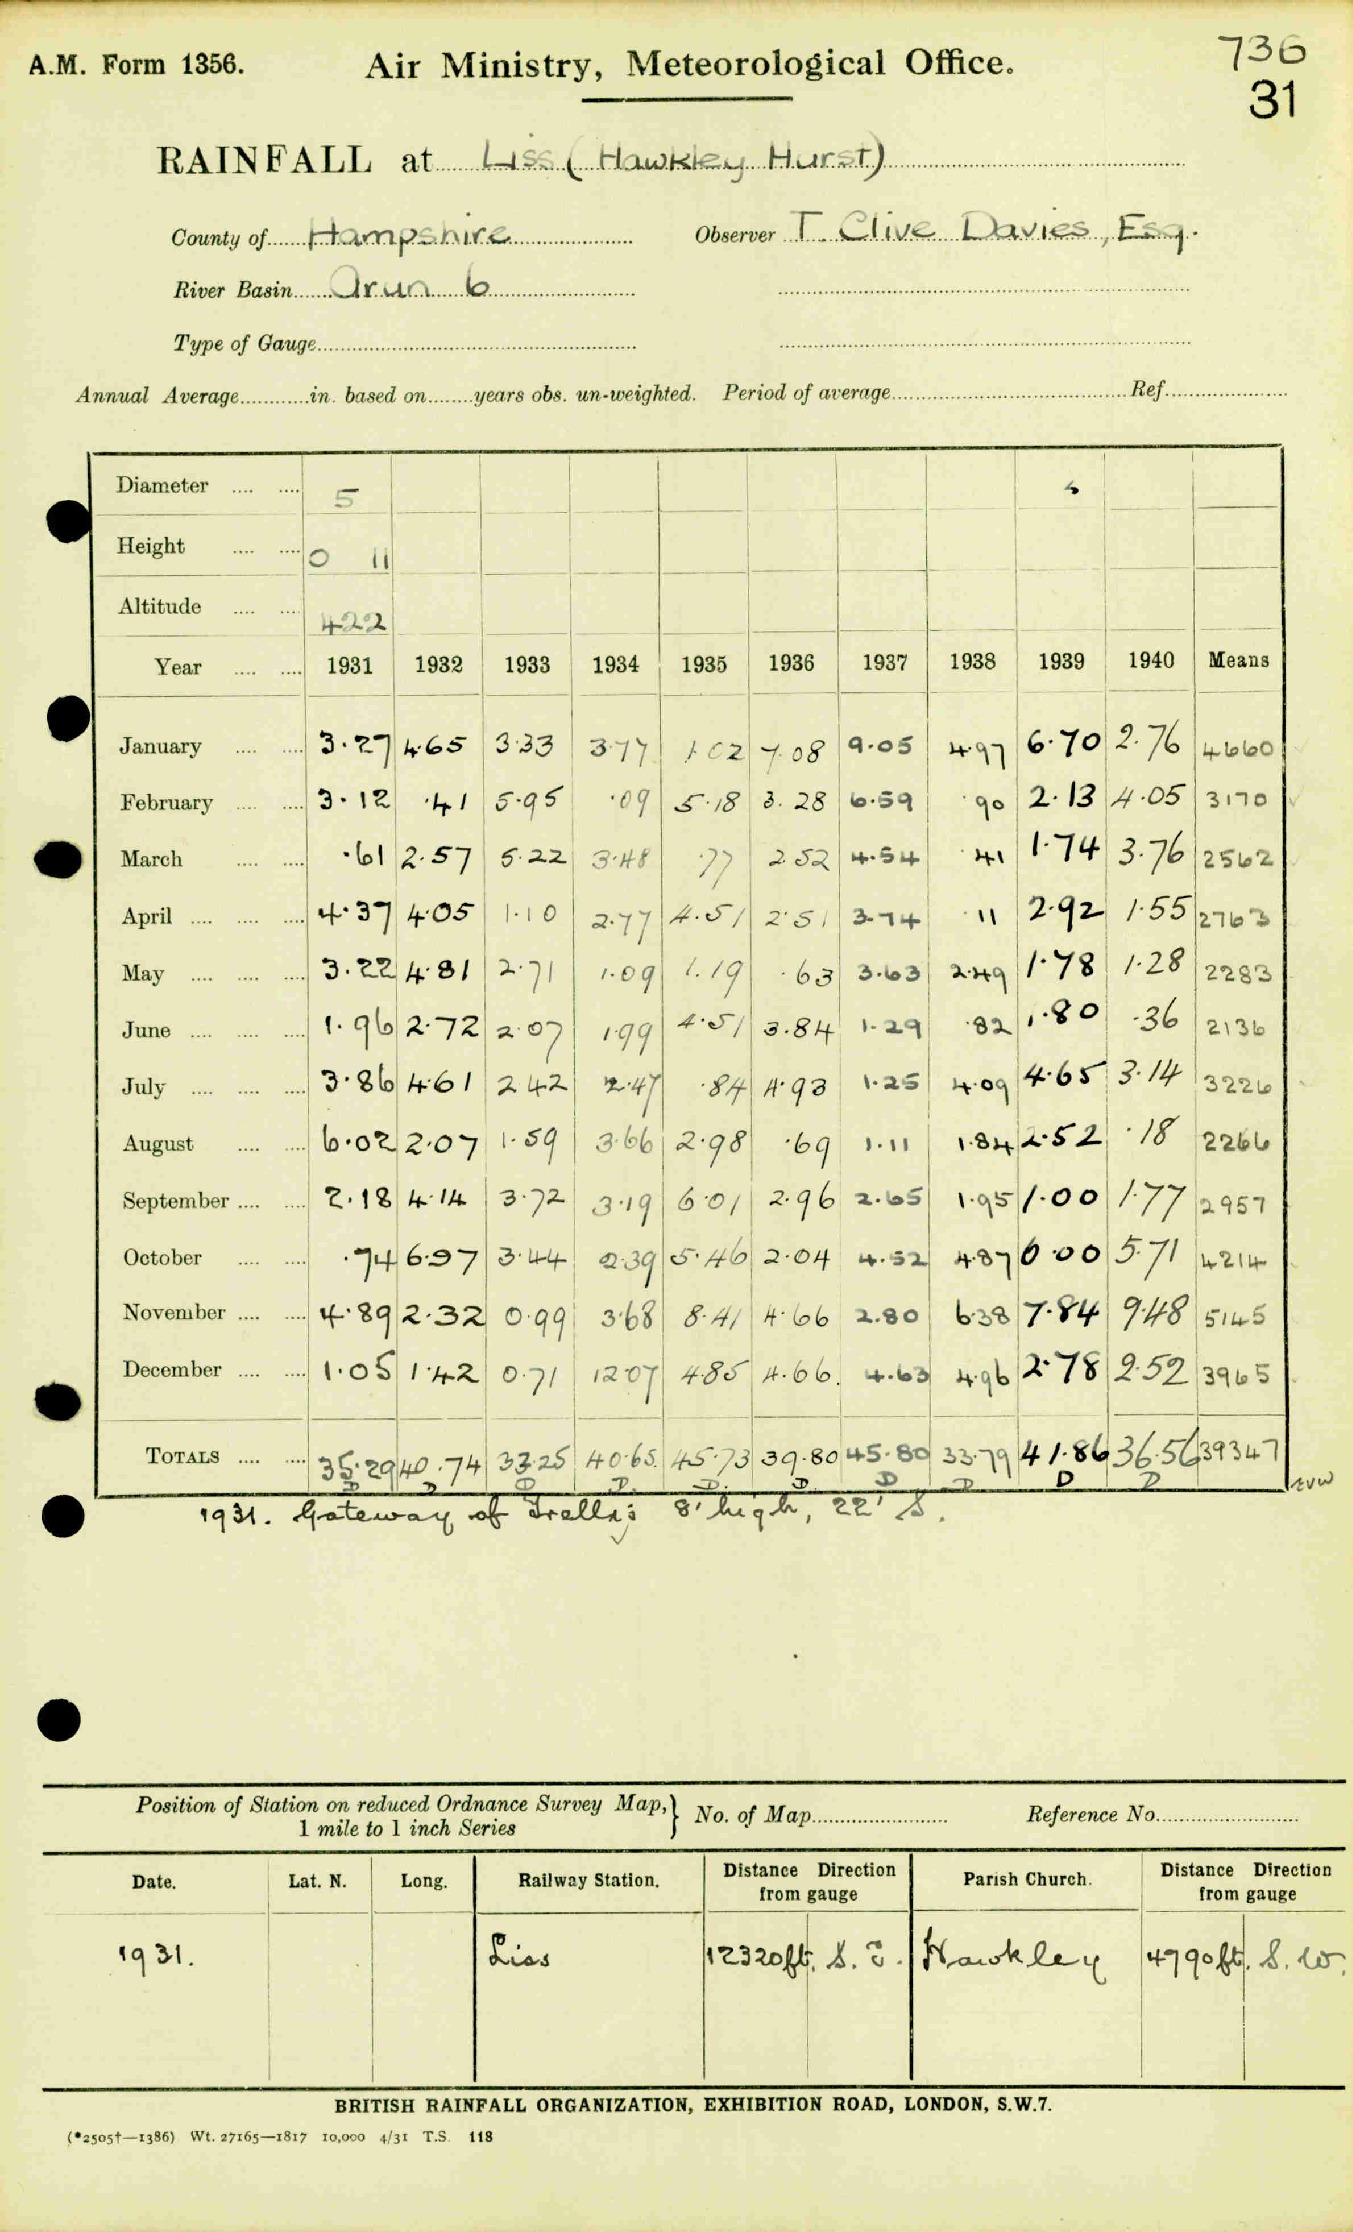 A.M. Form 1356.
Air Ministry, Meteorological Office.
736
31
RAINFALL at Liss (Hawkley Hurst)
County of Hampshire Observer T. Clive Davies, Esq.
River Basin Arun 6
Type of Gauge
Annual Average in. based on years obs. un-weighted. Period of average Ref.
Diameter 5
Height 0 11
Altitude 422
Year 1931 1932 1933 1934 1935 1936 1937 1938 1939 1940 Means
January 3.27 4.65 3.33 3.77 1.02 7.08 9.05 4.97 6.70 2.76 4660
February 3.12 .41 5.95 .09 5.18 3.28 6.59 .90 2.13 4.05 3170
March .61 2.57 5.22 3.48 .77 2.52 4.54 .41 1.74 3.76 2562
April 4.37 4.05 1.10 2.77 4.51 2.51 3.74 .11 2.92 1.55 2763
May 3.22 4.81 2.71 1.09 1.19 .63 3.63 2.49 1.78 1.28 2283
June 1.96 2.72 2.07 1.99 4.51 3.84 1.29 .82 1.80 .36 2136
July 3.86 4.61 2.42 2.47 .84 4.93 1.25 4.09 4.65 3.14 3226
August 6.02 2.07 1.59 3.66 2.98 .69 1.11 1.84 2.52 .18 2266
September 2.18 4.14 3.72 3.19 6.01 2.96 2.65 1.95 1.00 1.77 2957
October .74 6.97 3.44 2.39 5.46 2.04 4.52 4.87 6.00 5.71 4214
November 4.89 2.32 0.99 3.68 8.41 4.66 2.80 6.38 7.84 9.48 5145
December 1.05 1.42 0.71 12.07 4.85 4.66 4.63 4.96 2.78 2.52 3965
TOTALS 35.29 40.74 33.25 40.65 45.73 39.80 45.80 33.79 41.86 36.56 39347
D D D D D D D D D D
1931. Gateway of Trellis 8' high, 22' S.
Position of Station on reduced Ordnance Survey Map,} No. of Map Reference No.
1 mile to 1 inch Series
Date. Lat. N. Long. Railway Station. Distance Direction from gauge Parish Church. Distance Direction from gauge
1931. Liss 12320ft. S.E. Hawkley 4790ft. S.W.
BRITISH RAINFALL ORGANIZATION, EXHIBITION ROAD, LONDON, S.W.7.
(*2505†—1386) Wt. 27165—1817 10,000 4/31 T.S. 118